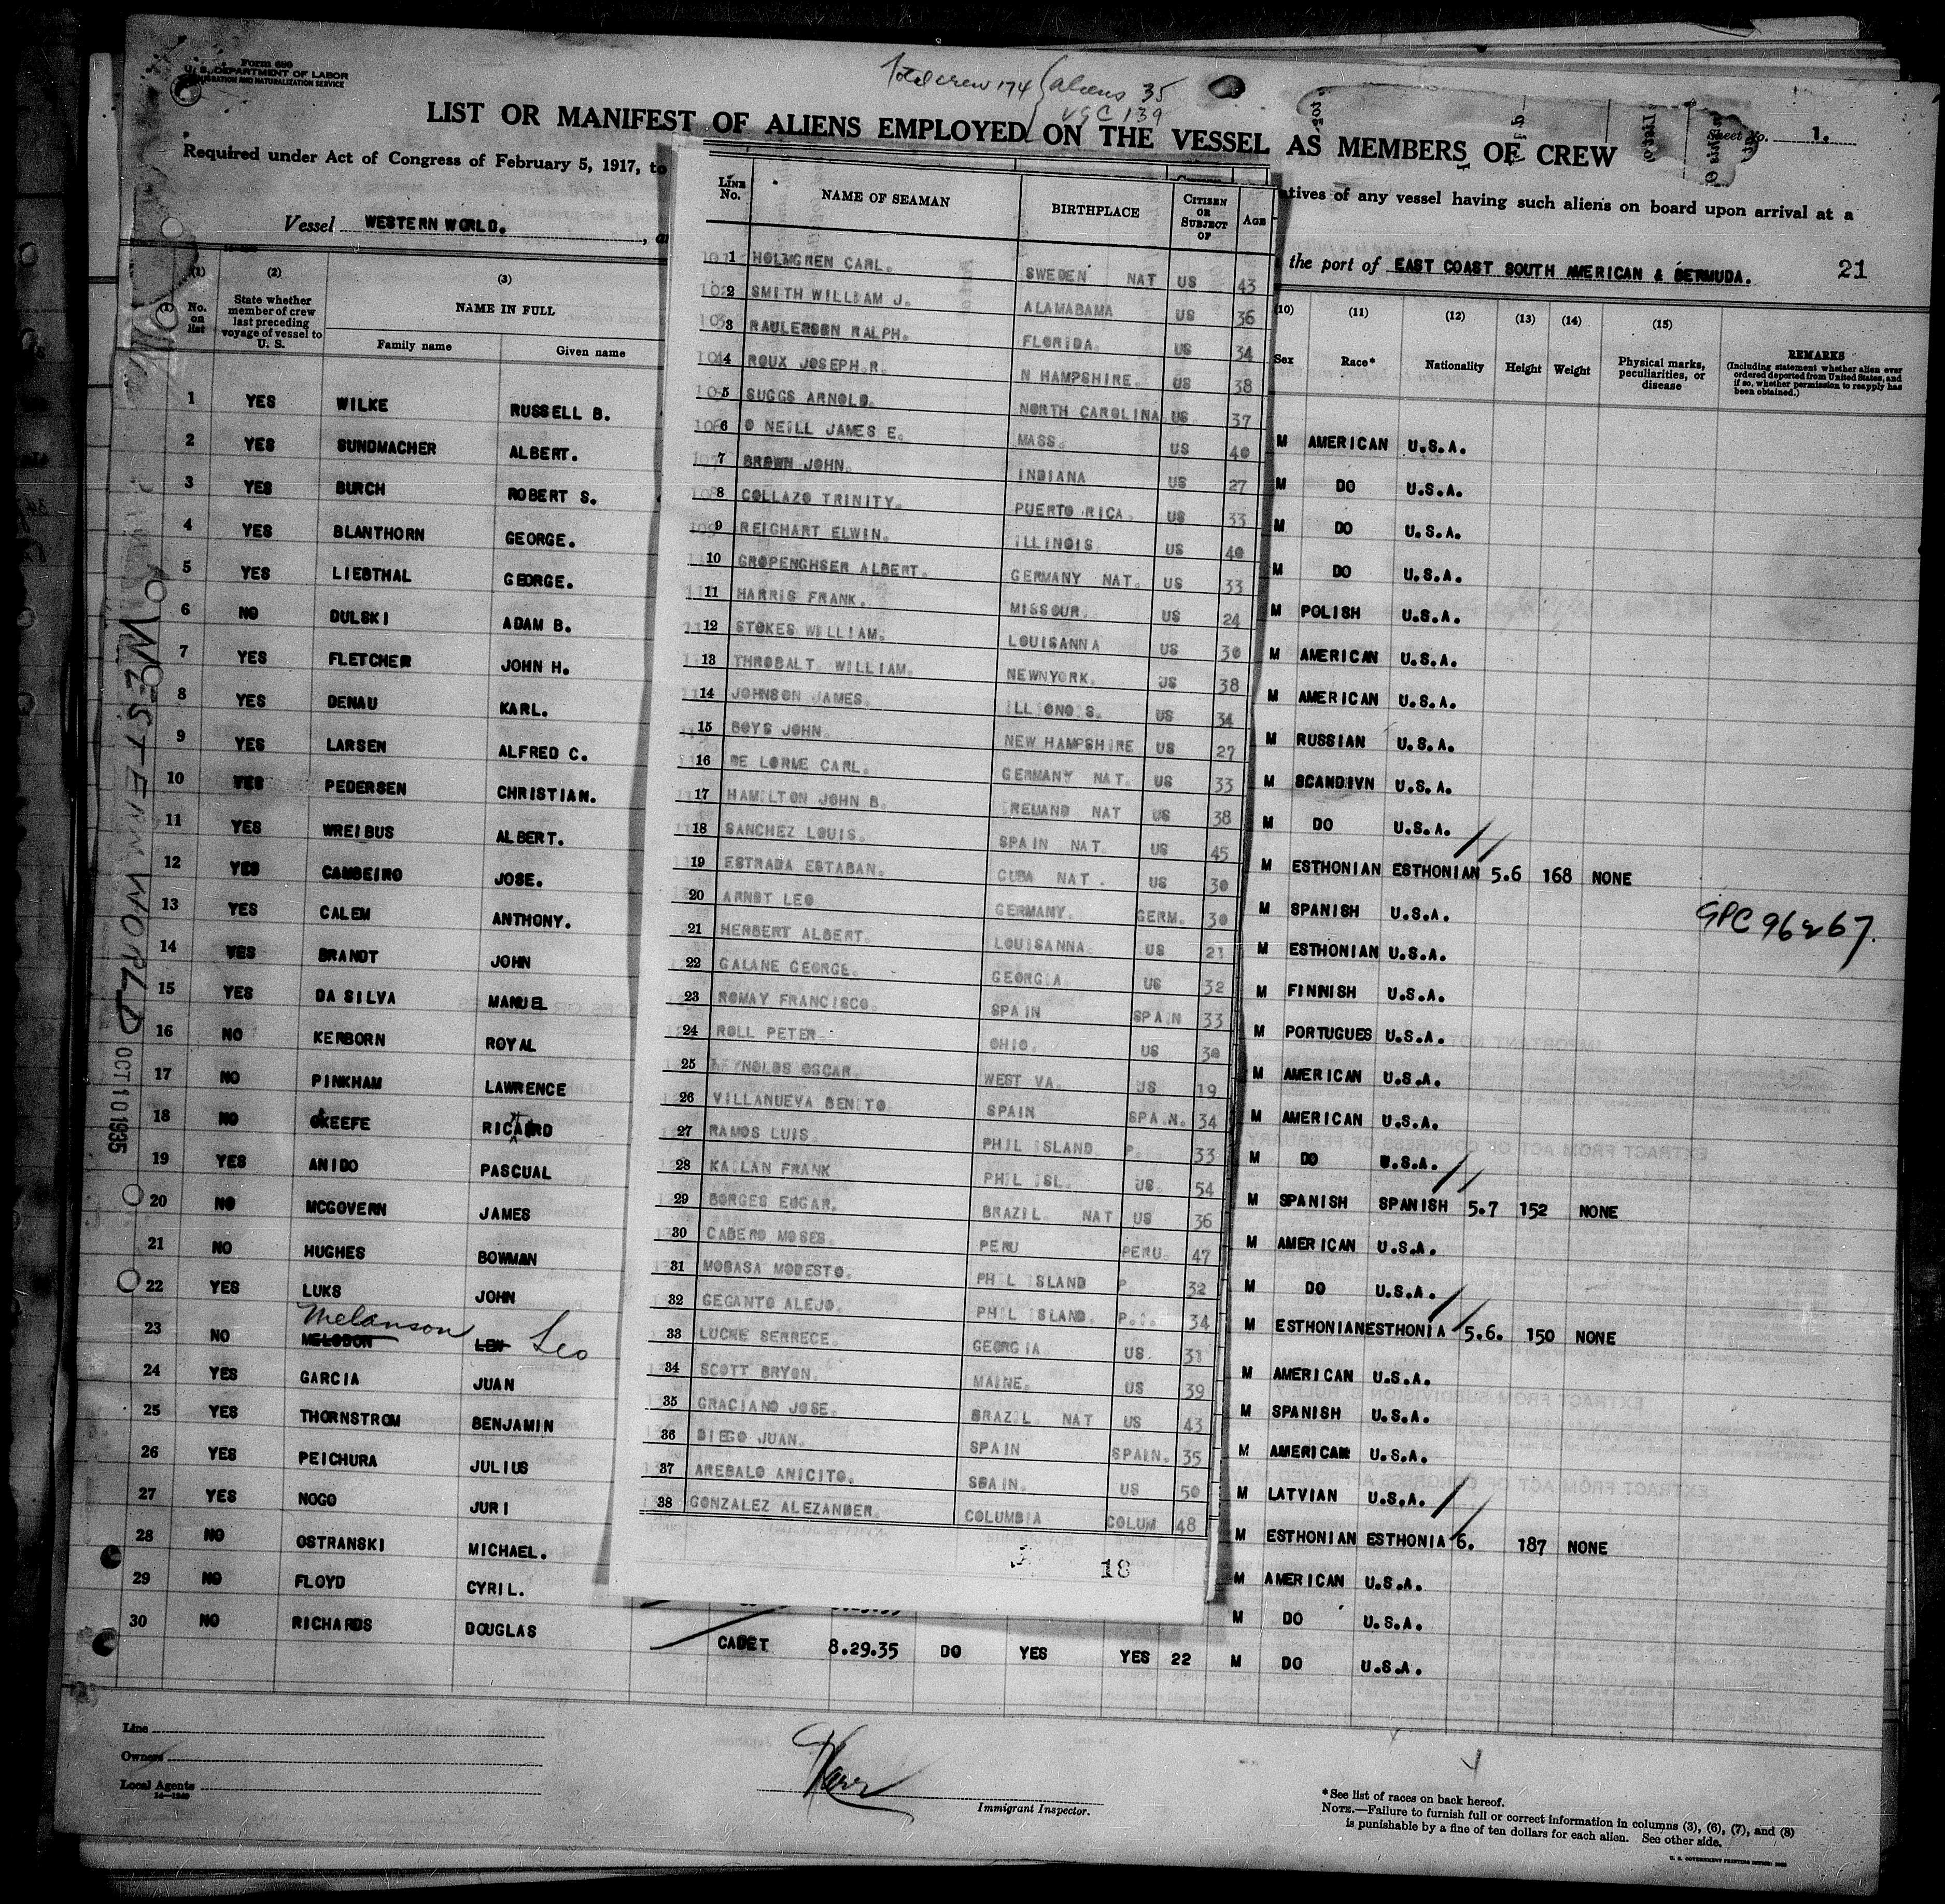 Form 680
U. S. DEPARTMENT OF LABOR
IMMIGRATION AND NATURALIZATION SERVICE
Total crew 174 { aliens 35
USC 139
LIST OR MANIFEST OF ALIENS EMPLOYED ON THE VESSEL AS MEMBERS OF CREW
Sheet No. 1.
Required under Act of Congress of February 5, 1917, to
atives of any vessel having such aliens on board upon arrival at a
Vessel WESTERN WORLD.
the port of EAST COAST SOUTH AMERICAN & BERMUDA.
21
(1) (2) (3)
No. on list
State whether member of crew last preceding voyage of vessel to U. S.
NAME IN FULL
Family name Given name
1 YES WILKE RUSSELL B.
2 YES SUNDMACHER ALBERT.
3 YES BURCH ROBERT S.
4 YES BLANTHORN GEORGE.
5 YES LIEBTHAL GEORGE.
6 NO DULSKI ADAM B.
7 YES FLETCHER JOHN H.
8 YES DENAU KARL.
9 YES LARSEN ALFRED C.
10 YES PEDERSEN CHRISTIAN.
11 YES WREIBUS ALBERT.
12 YES CAMBEIRO JOSE.
13 YES CALEM ANTHONY.
14 YES BRANDT JOHN
15 YES DA SILVA MANUEL
16 NO KERBORN ROYAL
17 NO PINKHAM LAWRENCE
18 NO OKEEFE RICHARD
19 YES ANIDO PASCUAL
20 NO MCGOVERN JAMES
21 NO HUGHES BOWMAN
22 YES LUKS JOHN
Melanson
23 NO MELODON LEW Leo
24 YES GARCIA JUAN
25 YES THORNSTROM BENJAMIN
26 YES PEICHURA JULIUS
27 YES NOGO JURI
28 NO OSTRANSKI MICHAEL.
29 NO FLOYD CYRIL.
30 NO RICHARDS DOUGLAS
CADET 8.29.35 DO YES YES 22 M DO U.S.A.
WESTERN WORLD
OCT 10 1935
LINE No. NAME OF SEAMAN BIRTHPLACE CITIZEN OR SUBJECT OF AGE
1 HOLMGREN CARL. SWEDEN NAT US 43
2 SMITH WILLIAM J. ALAMABAMA US 36
3 RAULERSEN RALPH. FLORIDA. US 34
4 ROUX JOSEPH.R. N HAMPSHIRE. US 38
5 SUGGS ARNOLD. NORTH CAROLINA US. 37
6 O NEILL JAMES E. MASS. US 40
7 BROWN JOHN. INDIANA US 27
8 COLLAZO TRINITY. PUERTO RICA. US 33
9 REIGHART ELWIN. ILLINOIS US 40
10 GROPENGHSER ALBERT. GERMANY NAT. US 33
11 HARRIS FRANK. MISSOUR. US 24
12 STOKES WILLIAM. LOUISANNA US 30
13 THROBALT WILLIAM. NEWNYORK. US 38
14 JOHNSON JAMES. ILLIONOIS. US 34
15 BOYS JOHN. NEW HAMPSHIRE US 27
16 DE LORME CARL. GERMANY NAT. US 33
17 HAMILTON JOHN B. IRELAND NAT US 38
18 SANCHEZ LOUIS. SPAIN NAT. US 45
19 ESTRADA ESTABAN. CUBA NAT. US 30
20 ARNDT LEO GERMANY. GERM. 30
21 HERBERT ALBERT. LOUISANNA. US 21
22 GALANE GEORGE. GEORGIA. US 32
23 ROMAY FRANCISCO. SPAIN SPAIN 33
24 ROLL PETER OHIO. US 30
25 REYNOLDS OSCAR. WEST VA. US 19
26 VILLANUEVA BENITO. SPAIN SPAIN. 34
27 RAMOS LUIS. PHIL ISLAND P. 33
28 KAILAN FRANK PHIL ISL. US. 54
29 BORGES EDGAR. BRAZIL. NAT US 36
30 CABERO MOSES. PERU PERU. 47
31 MOBASA MODESTO. PHIL ISLAND P. 32
32 GEGANTO ALEJO. PHIL ISLAND. P.I. 34
33 LUCKE SERRECE. GEORGIA US. 31
34 SCOTT BRYON. MAINE. US 39
35 GRACIANO JOSE. BRAZIL. NAT US 43
36 DIEGO JUAN. SPAIN SPAIN. 35
37 AREBALO ANICITO. SPAIN. US 50
38 GONZALEZ ALEZANDER. COLUMBIA COLUM 48
18
(10) (11) (12) (13) (14) (15)
Sex Race* Nationality Height Weight Physical marks, peculiarities, or disease
REMARKS
(Including statement whether alien ever ordered deported from United States, and if so, whether permission to reapply has been obtained.)
M AMERICAN U.S.A.
M DO U.S.A.
M DO U.S.A.
M DO U.S.A.
M POLISH U.S.A.
M AMERICAN U.S.A.
M AMERICAN U.S.A.
M RUSSIAN U.S.A.
M SCANDIVN U.S.A.
M DO U.S.A.
M ESTHONIAN ESTHONIAN 5.6 168 NONE
M SPANISH U.S.A.
M ESTHONIAN U.S.A.
M FINNISH U.S.A.
M PORTUGUES U.S.A.
M AMERICAN U.S.A.
M AMERICAN U.S.A.
M DO U.S.A.
M SPANISH SPANISH 5.7 152 NONE
M AMERICAN U.S.A.
M DO U.S.A.
M ESTHONIAN ESTHONIA 5.6. 150 NONE
M AMERICAN U.S.A.
M SPANISH U.S.A.
M AMERICAN U.S.A.
M LATVIAN U.S.A.
M ESTHONIAN ESTHONIA 6. 187 NONE
M AMERICAN U.S.A.
M DO U.S.A.
Line
Owners
Local Agents
Immigrant Inspector.
*See list of races on back hereof.
NOTE.—Failure to furnish full or correct information in columns (3), (6), (7), and (8)
is punishable by a fine of ten dollars for each alien. See other side.
U. S. GOVERNMENT PRINTING OFFICE